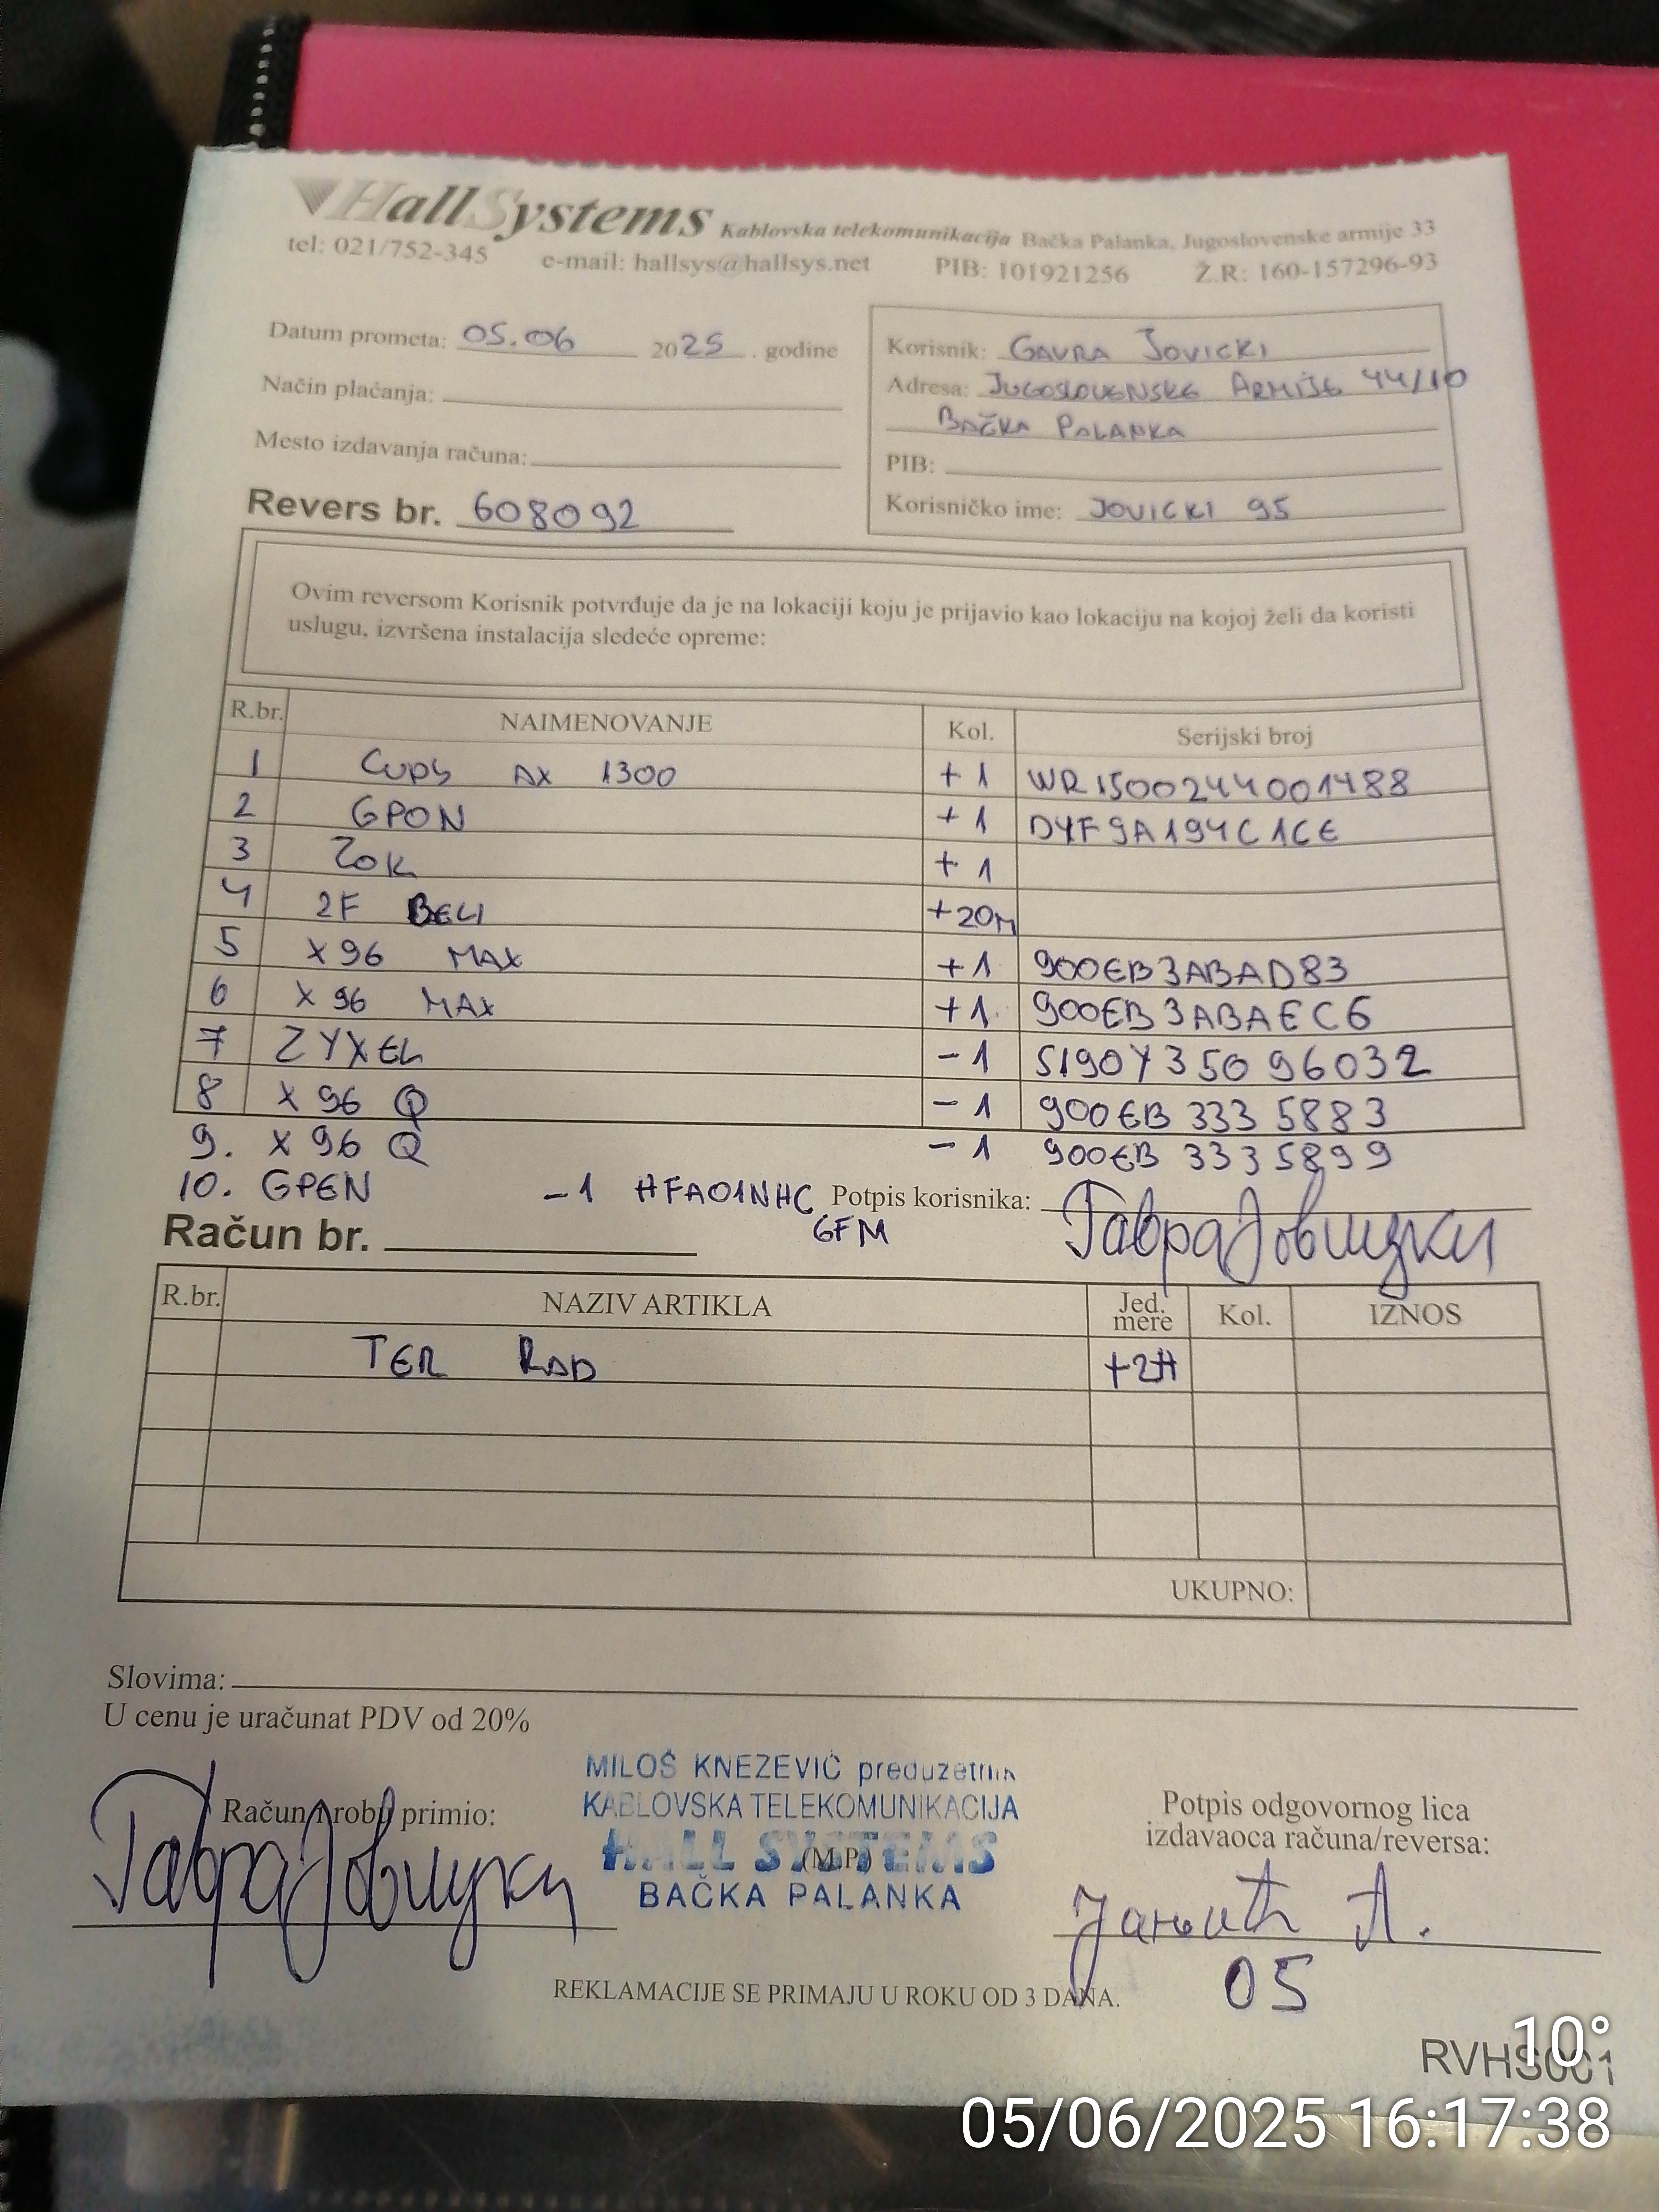 HallSystems Kablovska telekomunikacija Bačka Palanka, Jugoslovenske armije 33
tel: 021/752-345 e-mail: hallsys@hallsys.net PIB: 101921256 Ž.R: 160-157296-93
Datum prometa: 05.06 2025. godine
Način plaćanja:
Mesto izdavanja računa:
Revers br. 608092
Korisnik: GAVRA JOVICKI
Adresa: JUGOSLOVENSKE ARMIJE 44/10
BAČKA PALANKA
PIB:
Korisničko ime: JOVICKI 95
Ovim reversom Korisnik potvrđuje da je na lokaciji koju je prijavio kao lokaciju na kojoj želi da koristi
uslugu, izvršena instalacija sledeće opreme:
R.br. NAIMENOVANJE Kol. Serijski broj
1 CUDY AX 1300 +1 WR1500244001488
2 GPON +1 D4F9A194C1CE
3 ZOK +1
4 2F BELI +20M
5 X96 MAX +1 900EB3ABAD83
6 X96 MAX +1 900EB3ABAEC6
7 ZYXEL -1 S190Y35096032
8 X96 Q -1 900EB 333 5883
9. X96 Q -1 900EB 3335899
10. GPEN -1 HFA01NHC Potpis korisnika: Гавра Јовицки
6FM
Račun br.
R.br. NAZIV ARTIKLA Jed. mere Kol. IZNOS
TER RAD +2H
UKUPNO:
Slovima:
U cenu je uračunat PDV od 20%
MILOŠ KNEZEVIĆ preduzetnik
KABLOVSKA TELEKOMUNIKACIJA
HALL SYSTEMS
(M.P.)
BAČKA PALANKA
Račun i robu primio:
Гавра Јовицки
Potpis odgovornog lica
izdavaoca računa/reversa:
05
REKLAMACIJE SE PRIMAJU U ROKU OD 3 DANA.
RVHS001
10°
05/06/2025 16:17:38